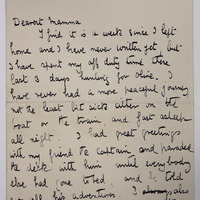 Dearest Mamma
I find it is a week since I left
home and I have never written yet, but
I have spent my off duty time these
last 3 days hunting for Olive. I
have never had a more peaceful journey
not the least bit sick either on the
boat or the train, and fast asleep
all night. I had great greetings
with my friend the Captain and paraded
the deck with him until everybody
else had gone to bed, and he told
me all his adventures. I also